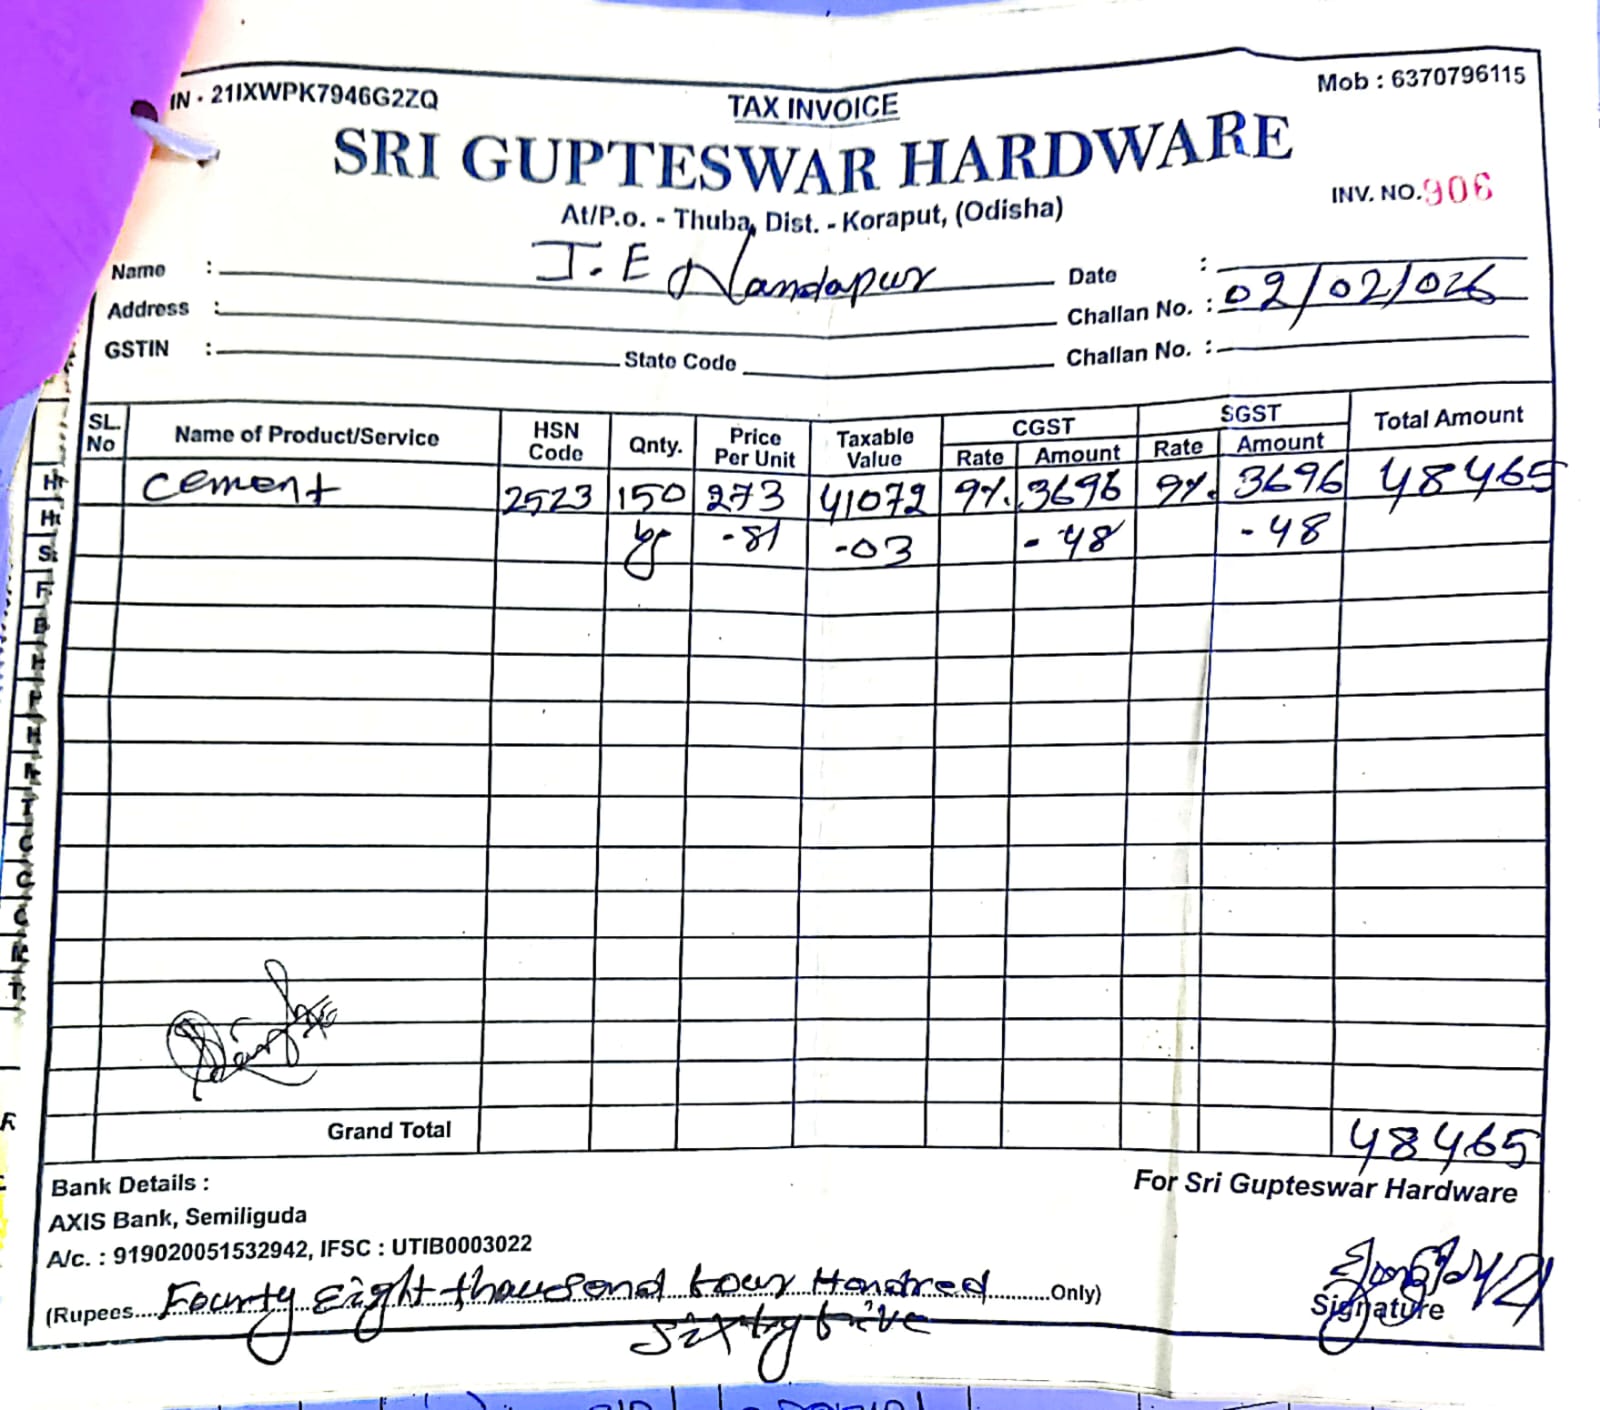 IN - 21IXWPK7946G2ZQ
TAX INVOICE
Mob : 6370796115
SRI GUPTESWAR HARDWARE
INV. NO. 906
At/P.o. - Thuba, Dist. - Koraput, (Odisha)
Name : J.E Nandapur
Date :
Address :
Challan No. : 02/02/026
GSTIN : State Code
Challan No. :
SL. No Name of Product/Service HSN Code Qnty. Price Per Unit Taxable Value CGST Rate Amount SGST Rate Amount Total Amount
Cement 2523 150 273 41072 9% 3696 9% 3696 48465
-81 -03 -48 -48
Grand Total 48465
Bank Details :
For Sri Gupteswar Hardware
AXIS Bank, Semiliguda
A/c. : 919020051532942, IFSC : UTIB0003022
(Rupees.... Fourty Eight thousend four Hondred ....Only)
Sixty five
Signature